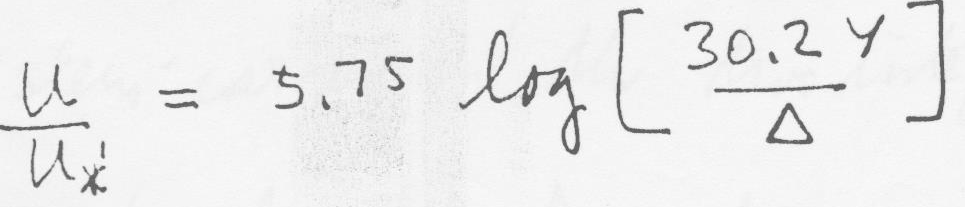 u/u*' = 5.75 log [30.2 y / Δ]